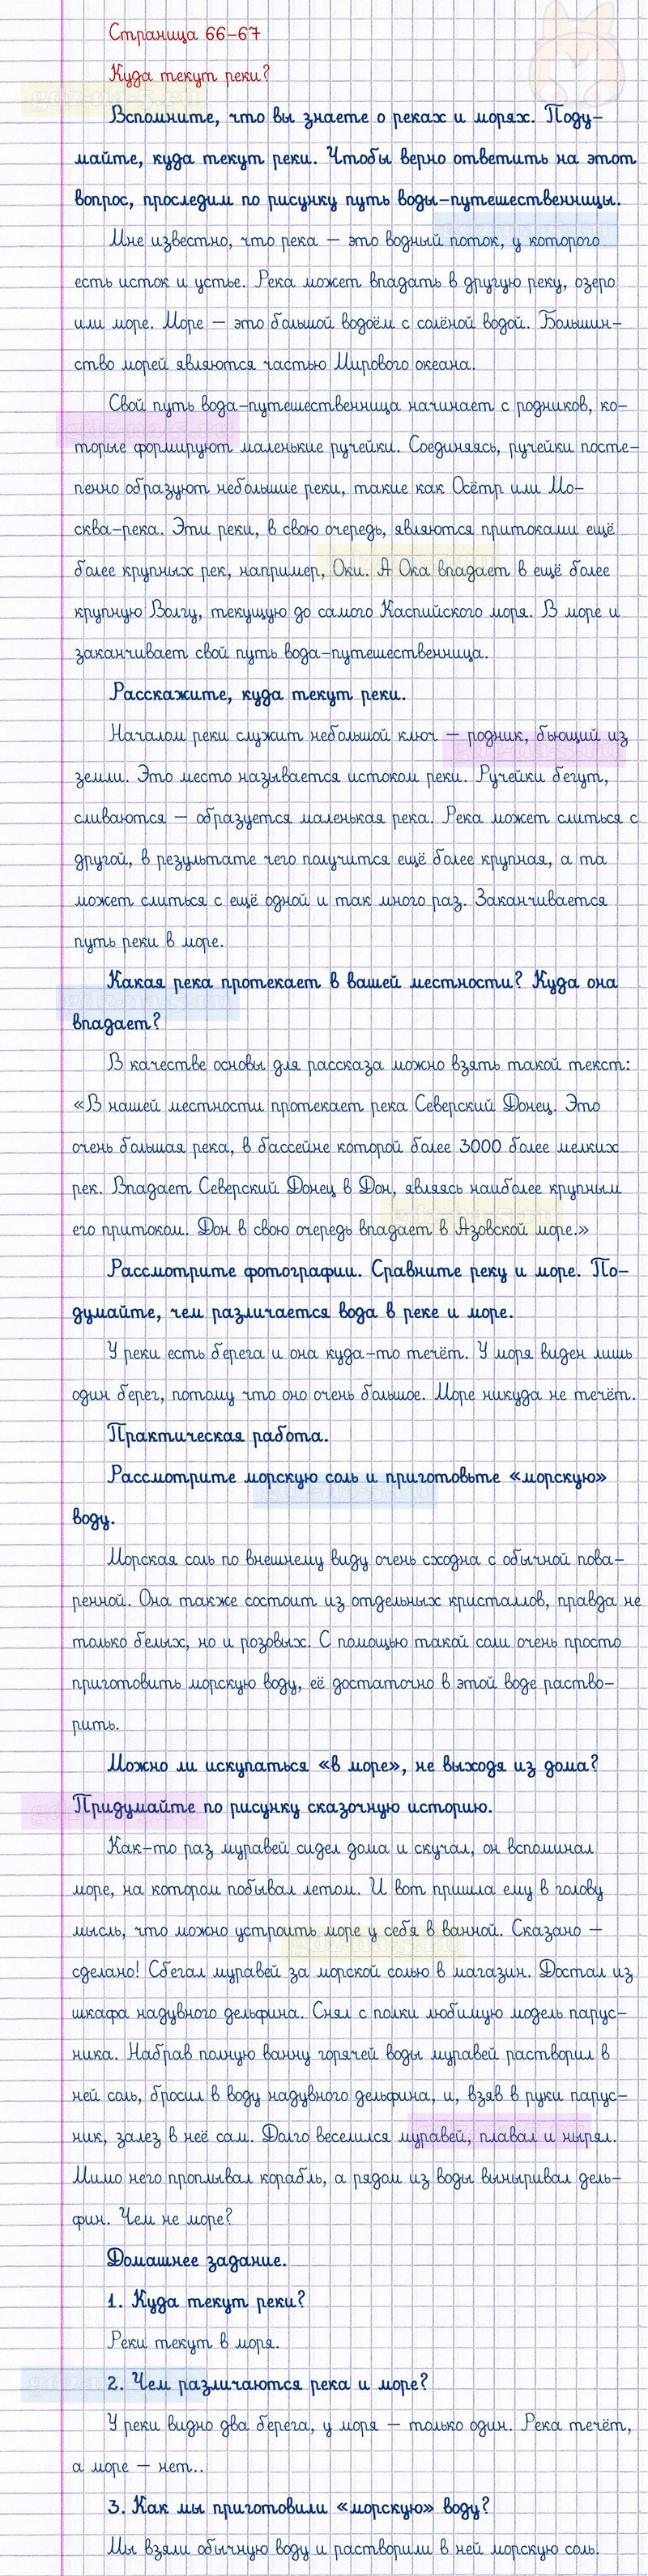 Страница 66-67
Куда текут реки?
Вспомните, что вы знаете о реках и морях. Поду-
майте, куда текут реки. Чтобы верно ответить на этот
вопрос, проследим по рисунку путь воды-путешественницы.
Мне известно, что река – это водный поток, у которого
есть исток и устье. Река может впадать в другую реку, озеро
или море. Море – это большой водоём с солёной водой. Большин-
ство морей являются частью Мирового океана.
Свой путь вода-путешественница начинает с родников, ко-
торые формируют маленькие ручейки. Соединяясь, ручейки посте-
пенно образуют небольшие реки, такие как Осётр или Мо-
сква-река. Эти реки, в свою очередь, являются притоками ещё
более крупных рек, например, Оки. А Ока впадает в ещё более
крупную Волгу, текущую до самого Каспийского моря. В море и
заканчивает свой путь вода-путешественница.
Расскажите, куда текут реки.
Началом реки служит небольшой ключ – родник, бьющий из
земли. Это место называется истоком реки. Ручейки бегут,
сливаются – образуется маленькая река. Река может слиться с
другой, в результате чего получится ещё более крупная, а та
может слиться с ещё одной и так много раз. Заканчивается
путь реки в море.
Какая река протекает в вашей местности? Куда она
впадает?
В качестве основы для рассказа можно взять такой текст:
«В нашей местности протекает река Северский Донец. Это
очень большая река, в бассейне которой более 3000 более мелких
рек. Впадает Северский Донец в Дон, являясь наиболее крупным
его притоком. Дон в свою очередь впадает в Азовской море.»
Рассмотрите фотографии. Сравните реку и море. По-
думайте, чем различается вода в реке и море.
У реки есть берега и она куда-то течёт. У моря виден лишь
один берег, потому что оно очень большое. Море никуда не течёт.
Практическая работа.
Рассмотрите морскую соль и приготовьте «морскую»
воду.
Морская соль по внешнему виду очень сходна с обычной пова-
ренной. Она также состоит из отдельных кристаллов, правда не
только белых, но и розовых. С помощью такой соли очень просто
приготовить морскую воду, её достаточно в этой воде раство-
рить.
Можно ли искупаться «в море», не выходя из дома?
Придумайте по рисунку сказочную историю.
Как-то раз муравей сидел дома и скучал, он вспоминал
море, на котором побывал летом. И вот пришла ему в голову
мысль, что можно устроить море у себя в ванной. Сказано –
сделано! Сбегал муравей за морской солью в магазин. Достал из
шкафа надувного дельфина. Снял с полки любимую модель парус-
ника. Набрав полную ванну горячей воды муравей растворил в
ней соль, бросил в воду надувного дельфина, и, взяв в руки парус-
ник, залез в неё сам. Долго веселился муравей, плавал и нырял.
Мимо него проплывал корабль, а рядом из воды выныривал дель-
фин. Чем не море?
Домашнее задание.
1. Куда текут реки?
Реки текут в моря.
2. Чем различаются река и море?
У реки видно два берега, у моря – только один. Река течёт,
а море – нет..
3. Как мы приготовили «морскую» воду?
Мы взяли обычную воду и растворили в ней морскую соль.